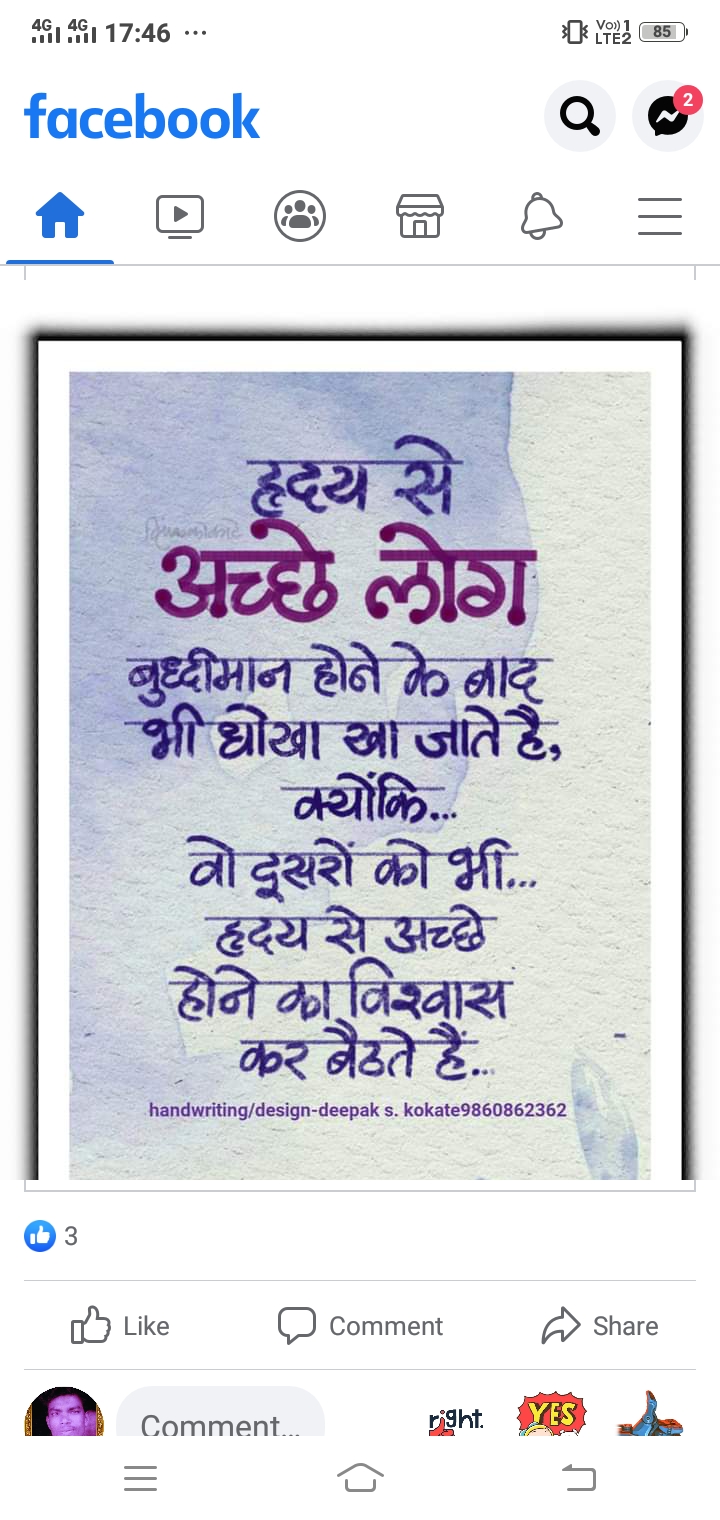 4G 4G 17:46 ... Vo)) 1 LTE2 85
facebook
2
हृदय से
अच्छे लोग
बुध्दीमान होने के बाद
भी धोखा खा जाते है,
क्योंकि...
वो दूसरों को भी...
हृदय से अच्छे
होने का विश्वास
कर बैठते हैं...
handwriting/design-deepak s. kokate9860862362
3
Like Comment Share
Comment... right. YES